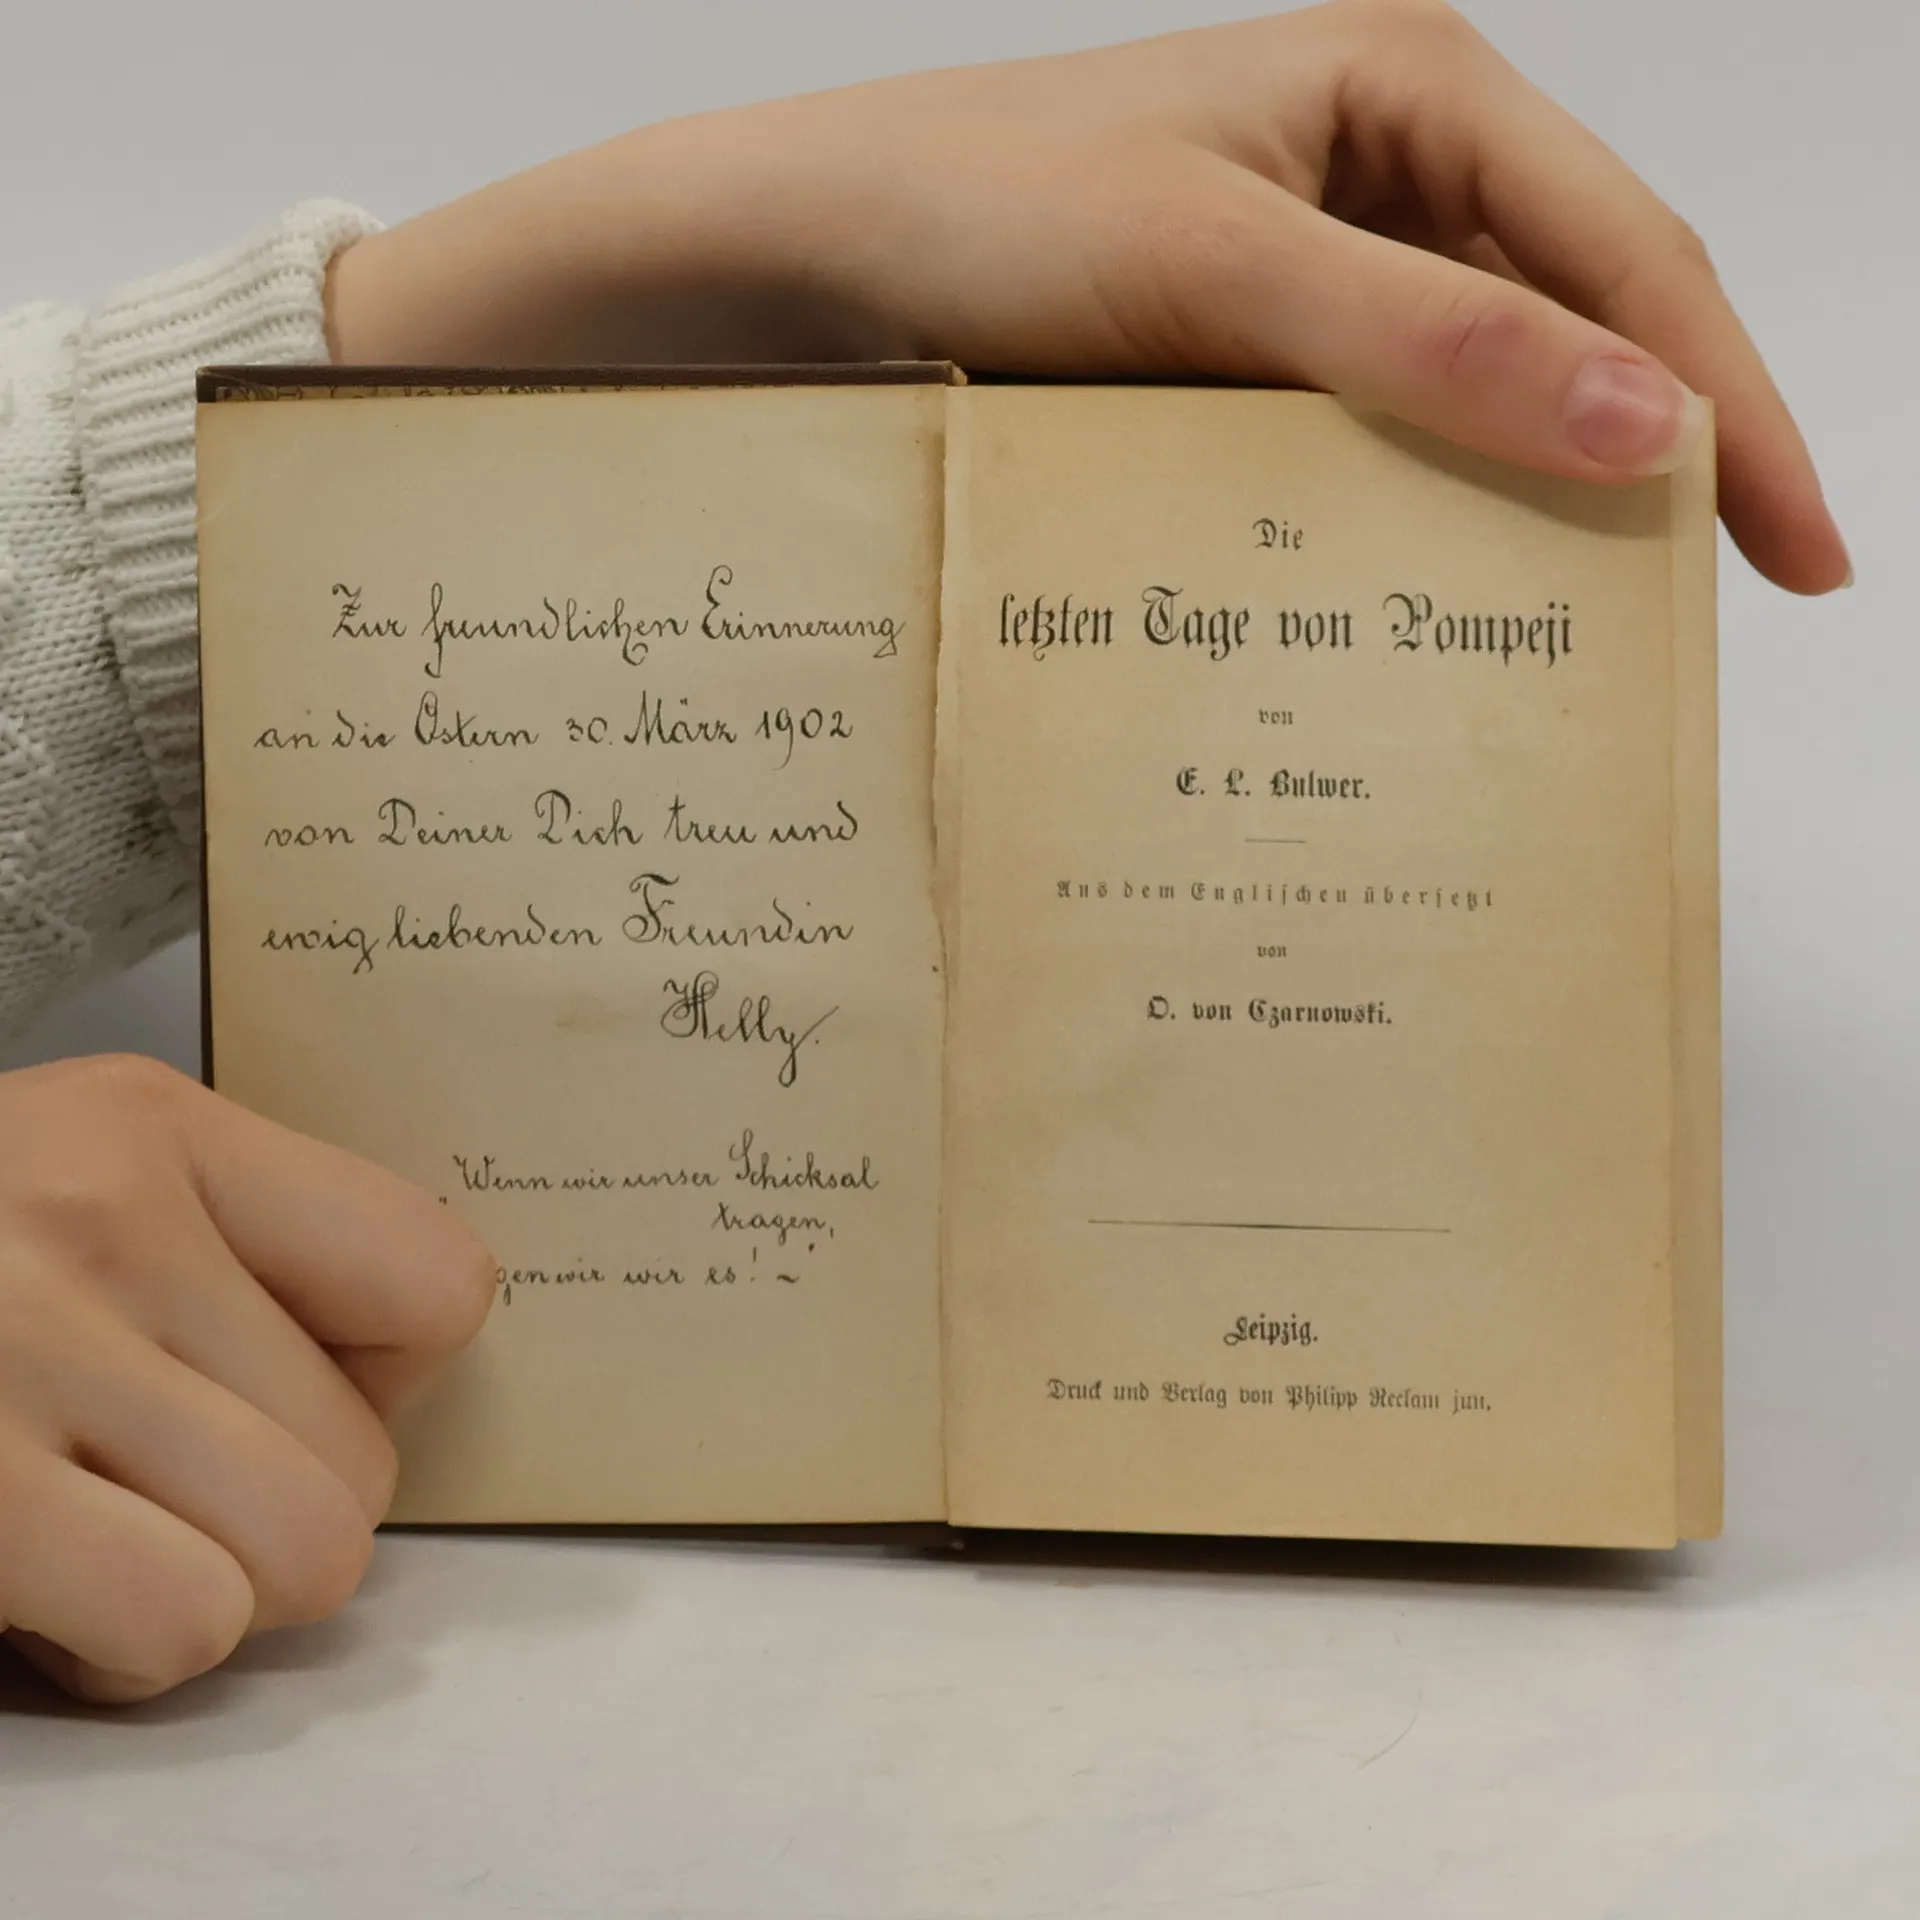 Zur freundlichen Erinnerung
an die Ostern 30. März 1902
von Deiner Dich treu und
ewig liebenden Freundin
Helly.
„Wenn wir unser Schicksal
tragen,
wir es! ~
Die
letzten Tage von Pompeji
von
E. L. Bulwer.
Aus dem Englischen übersetzt
von
O. von Czarnowski.
Leipzig.
Druck und Verlag von Philipp Reclam jun.